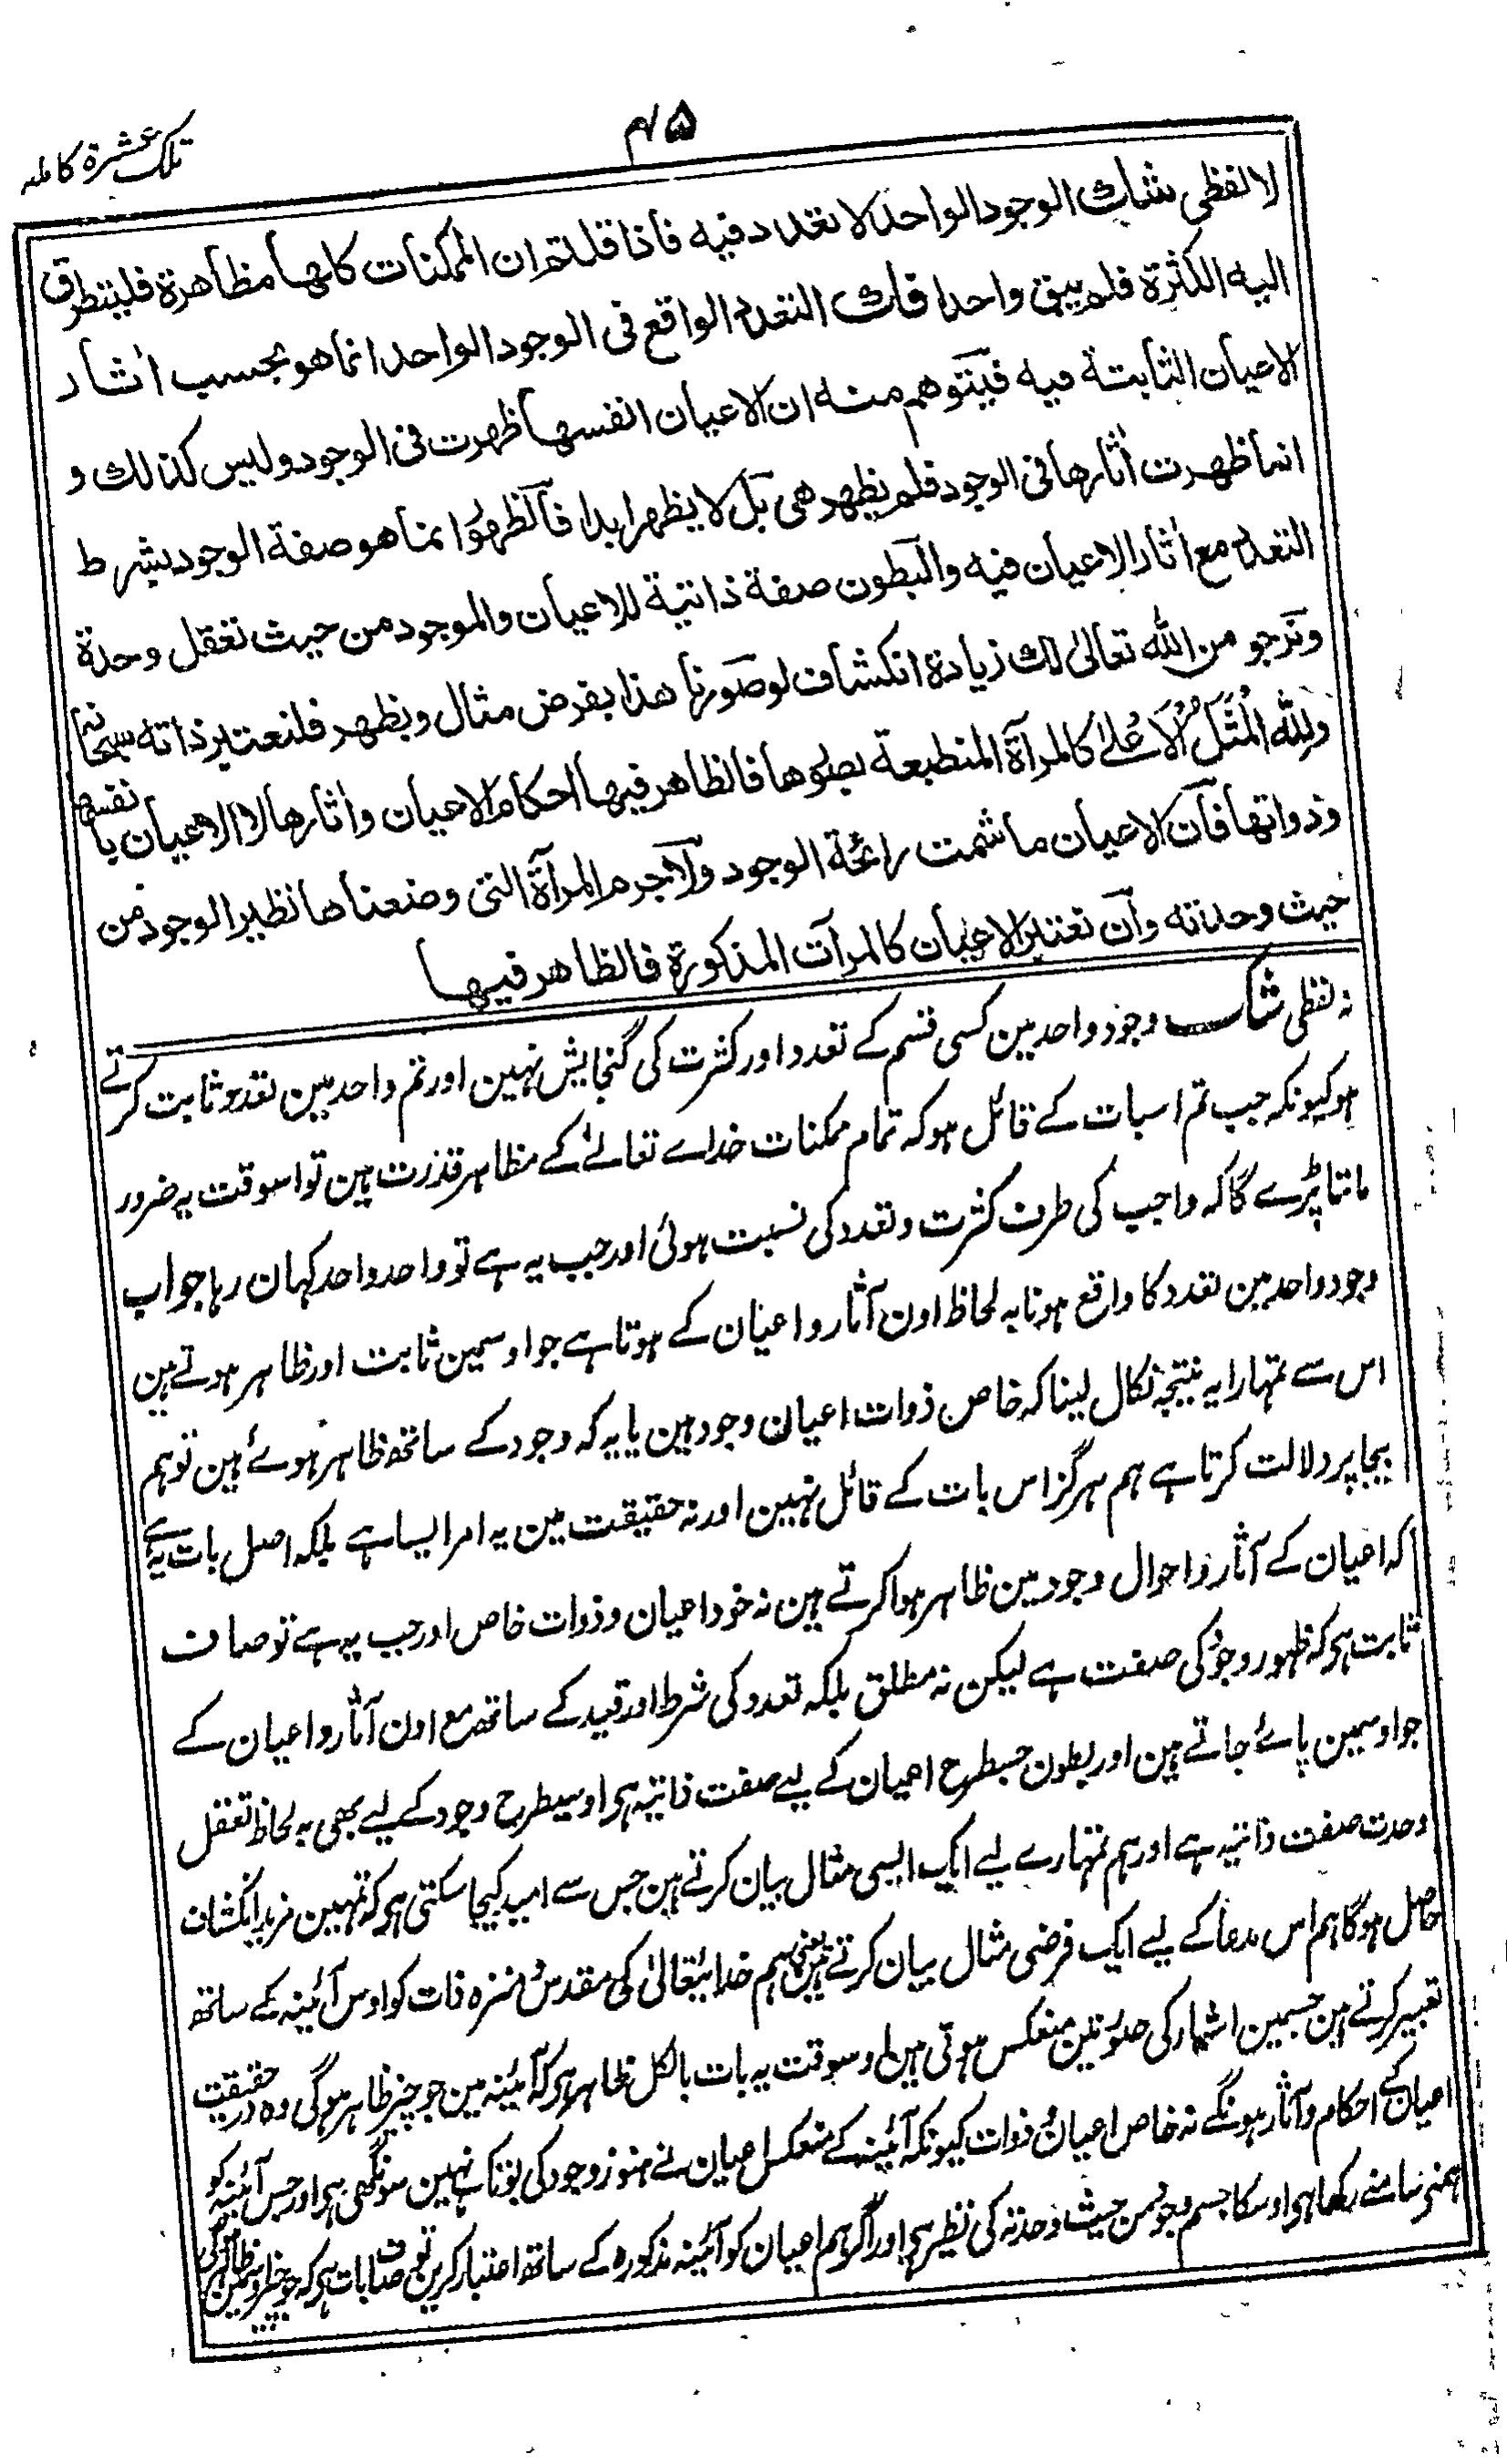 ۴۵
تلک عشرة کاملہ
لا لفظی شاك الوجود الواحد لا تعدد فیه فاذا قلتم ان الممکنات کلها مظاهرة فلیتطرق
الیه الکثرة فلم یبق واحدا فاك التعدد الواقع فی الوجود الواحد انما هو بحسب اثار
الاعیان الثابتة فیه فیتوهم منه ان الاعیان انفسها ظهرت فی الوجود ولیس کذالك و
انما ظهرت اثارها فی الوجود فلم یظهر هی بل لا یظهر ابدا فالظهور انما هو صفة الوجود بشرط
التعدد مع اثار الاعیان فیه والبطون صفة ذاتیة للاعیان والموجود من حیث تعقل وحدة
ونرجو من الله تعالیٰ لك زیادة انکشاف لو صورنا هذا بفرض مثال ویظهر فلنعتبر ذاته سبحانه
ولله المثل الاعلیٰ کالمرآة المنطبعة بصورها فالظاهر فیها احکام الاعیان واثارها لا الاعیان بانفسها
وذواتها فان الاعیان ما شمت رائحة الوجود ولا جرم المرآة التی وضعناها نظیر الوجود من
حیث وحدته وان تعتبر الاعیان کالمرآت المذکورة فالظاهر فیها
نہ لفظی شاک وجود واحد مین کسی قسم کے تعدد اور کثرت کی گنجایش نہین اور تم واحد مین تعدد ثابت کرتے
ہو کیونکہ جب تم اسبات کے قائل ہو کہ تمام ممکنات خداے تعالےٰ کے مظاہر قدرت ہین تو اسوقت یہ ضرور
ماننا پڑے گا کہ واجب کی طرف کثرت و تعدد کی نسبت ہوئی اور جب یہ ہے تو واحد واحد کہان رہا جواب
وجود واحد مین تعدد کا واقع ہونا بہ لحاظ اون آثار و اعیان کے ہوتا ہے جو اوسمین ثابت اور ظاہر ہوتے ہین
اس سے تمہارا یہ نتیجہ نکال لینا کہ خاص ذوات اعیان وجود ہین یا یہ کہ وجود کے ساتھ ظاہر ہوئے ہین توہم
بیجا پر دلالت کرتا ہے ہم ہرگز اس بات کے قائل نہین اور نہ حقیقت مین یہ امر ایسا ہے بلکہ اصل بات یہ ہے
کہ اعیان کے آثار و احوال وجود مین ظاہر ہوا کرتے ہین نہ خود اعیان و ذوات خاص اور جب یہ ہے تو صاف
ثابت ہی کہ ظہور وجود کی صفت ہے لیکن نہ مطلق بلکہ تعدد کی شرط اور قید کے ساتھ مع اون آثار و اعیان کے
جو اوسمین پائے جاتے ہین اور بطون جسطرح اعیان کے لیے صفت ذاتیہ ہی اوسیطرح وجود کے لیے بھی بہ لحاظ تعقل
وحدت صفت ذاتیہ ہے اور ہم تمہارے لیے ایک ایسی مثال بیان کرتے ہین جس سے امید کیجا سکتی ہی کہ تمہین مزید انکشاف
حاصل ہوگا ہم اس مدعا کے لیے ایک فرضی مثال بیان کرتے ہین یعنی ہم خدایتعالیٰ کی مقدس و منزہ ذات کو اوس آئینہ کے ساتھ
تعبیر کرتے ہین جسمین اشیار کی صورتین منعکس ہوتی ہین اوسوقت یہ بات بالکل ظاہر ہی کہ آئینہ مین جو چیز ظاہر ہوگی وہ درحقیقت
اعیان کے احکام و آثار ہونگے نہ خاص اعیان و ذوات کیونکہ آئینہ کے منعکس اعیان نے ہنوز وجود کی بو تک نہین سونگھی ہی اور جس آئینہ کو
ہمنے سامنے رکھا ہی اوسکا جسم وجود من حیث وحدتہ کی نظیر ہی اور اگر ہم اعیان کو آئینہ مذکورہ کے ساتھ اعتبار کرین تو صاف بات ہی کہ جو چیز اوسمین ظاہر ہوگی